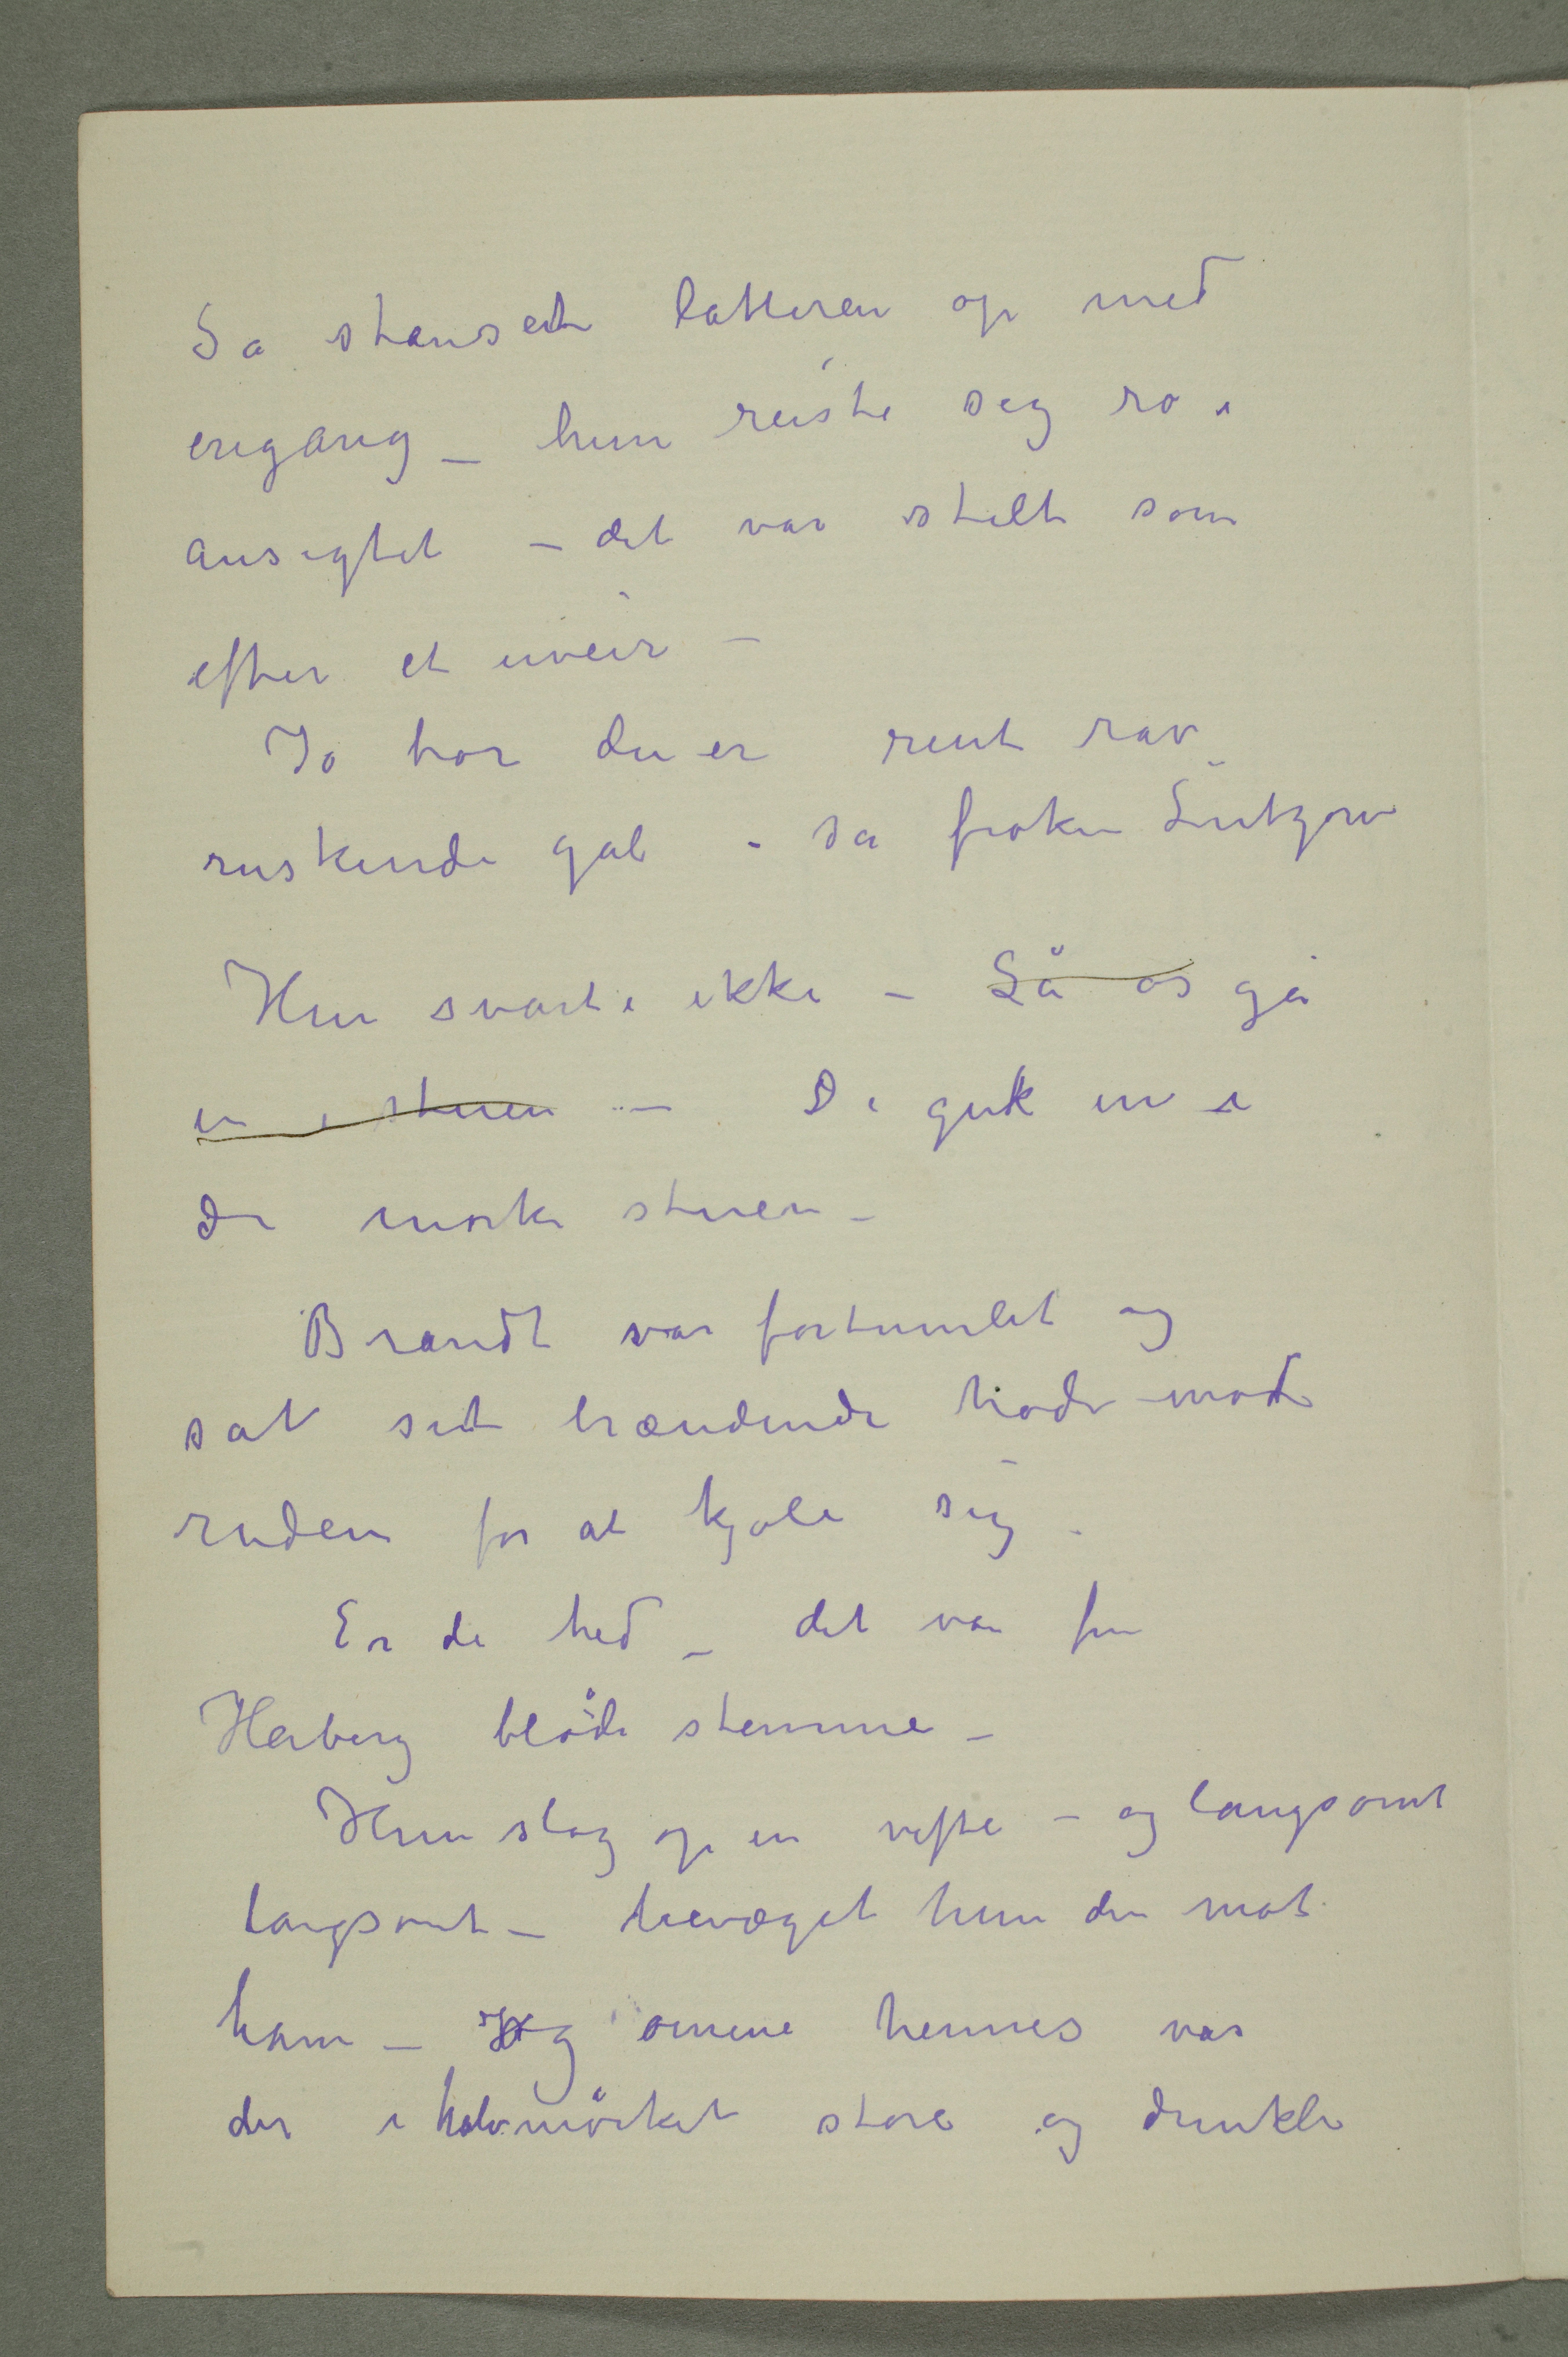 Så stanset latteren op med
engang – hun reiste seg rø i
ansigtet – det var stilt som
efter et uveir –
Jo hør du er rent rav
ruskende gal – sa frøken Lützow
Hun svarte ikke – Lå os gå
in i stuen – Di gik in i
de mørke stuen –
Brandt var fortumlet og
sat sit brændende hode mod
ruden for at kjøle sig.
Er de hed – det var fru
Heiberg bløde stemme –
Hun slog op en vifte – og langsomt
langsomt – bevæget hun den mot
ham – og ømene hennes var
der i halvmørket store og dunkle